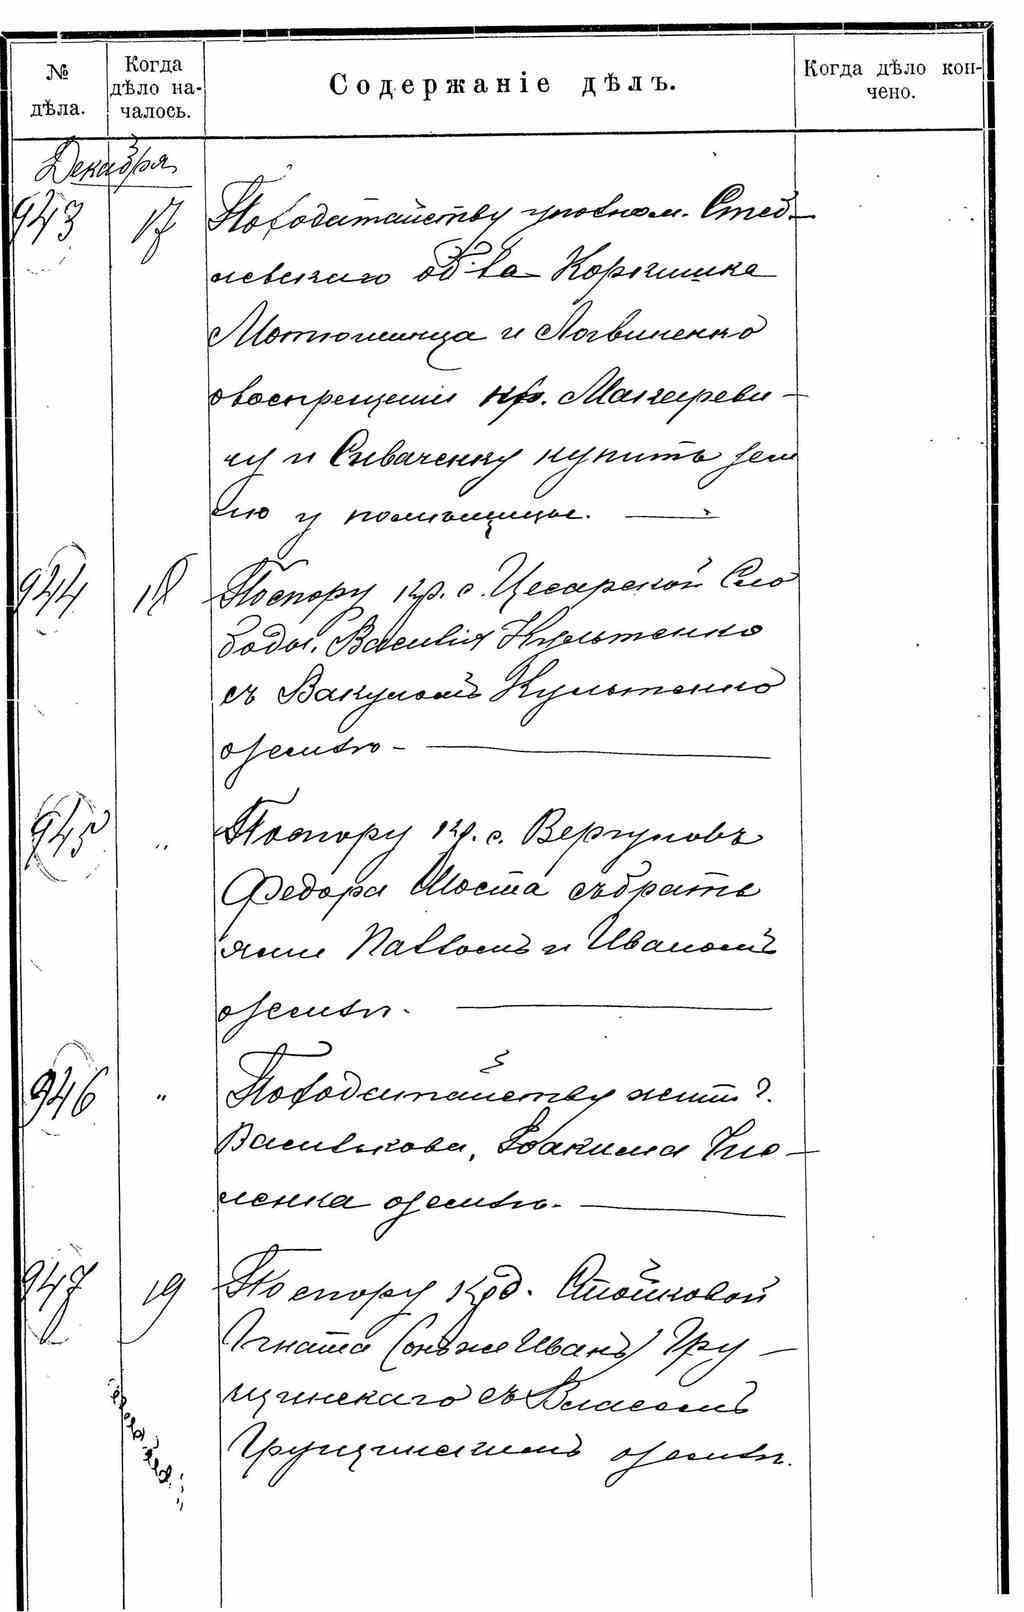 № дѣла.
Когда дѣло началось.
Содержаніе дѣлъ.
Когда дѣло кончено.
Декабря
943 17 По ходатайству уполном. Стеб-
левскаго об-ва Коркишка
Мотюшинца и Логвиненко
о воспрещеніи кр. Макареви-
чу и Сиваченку купить зем
лю у помѣщицы.
944 18 По спору кр. с. Цесарской Сло
боды, Василія Культенко
съ Вакуломъ Культенко
о землю
945 " По спору кр. с. Вергуновъ
Федора Моста съ брать
ями Павломъ и Иваномъ
о земли.
946 " По ходатайству жит. г.
Василькова, Іоакима
ленка о землю.
947 19 По спору кр. д. Стойковой
Игната (онъ же Иванъ) Гру-
щинскаго съ Власомъ
Грущинскимъ о земли.